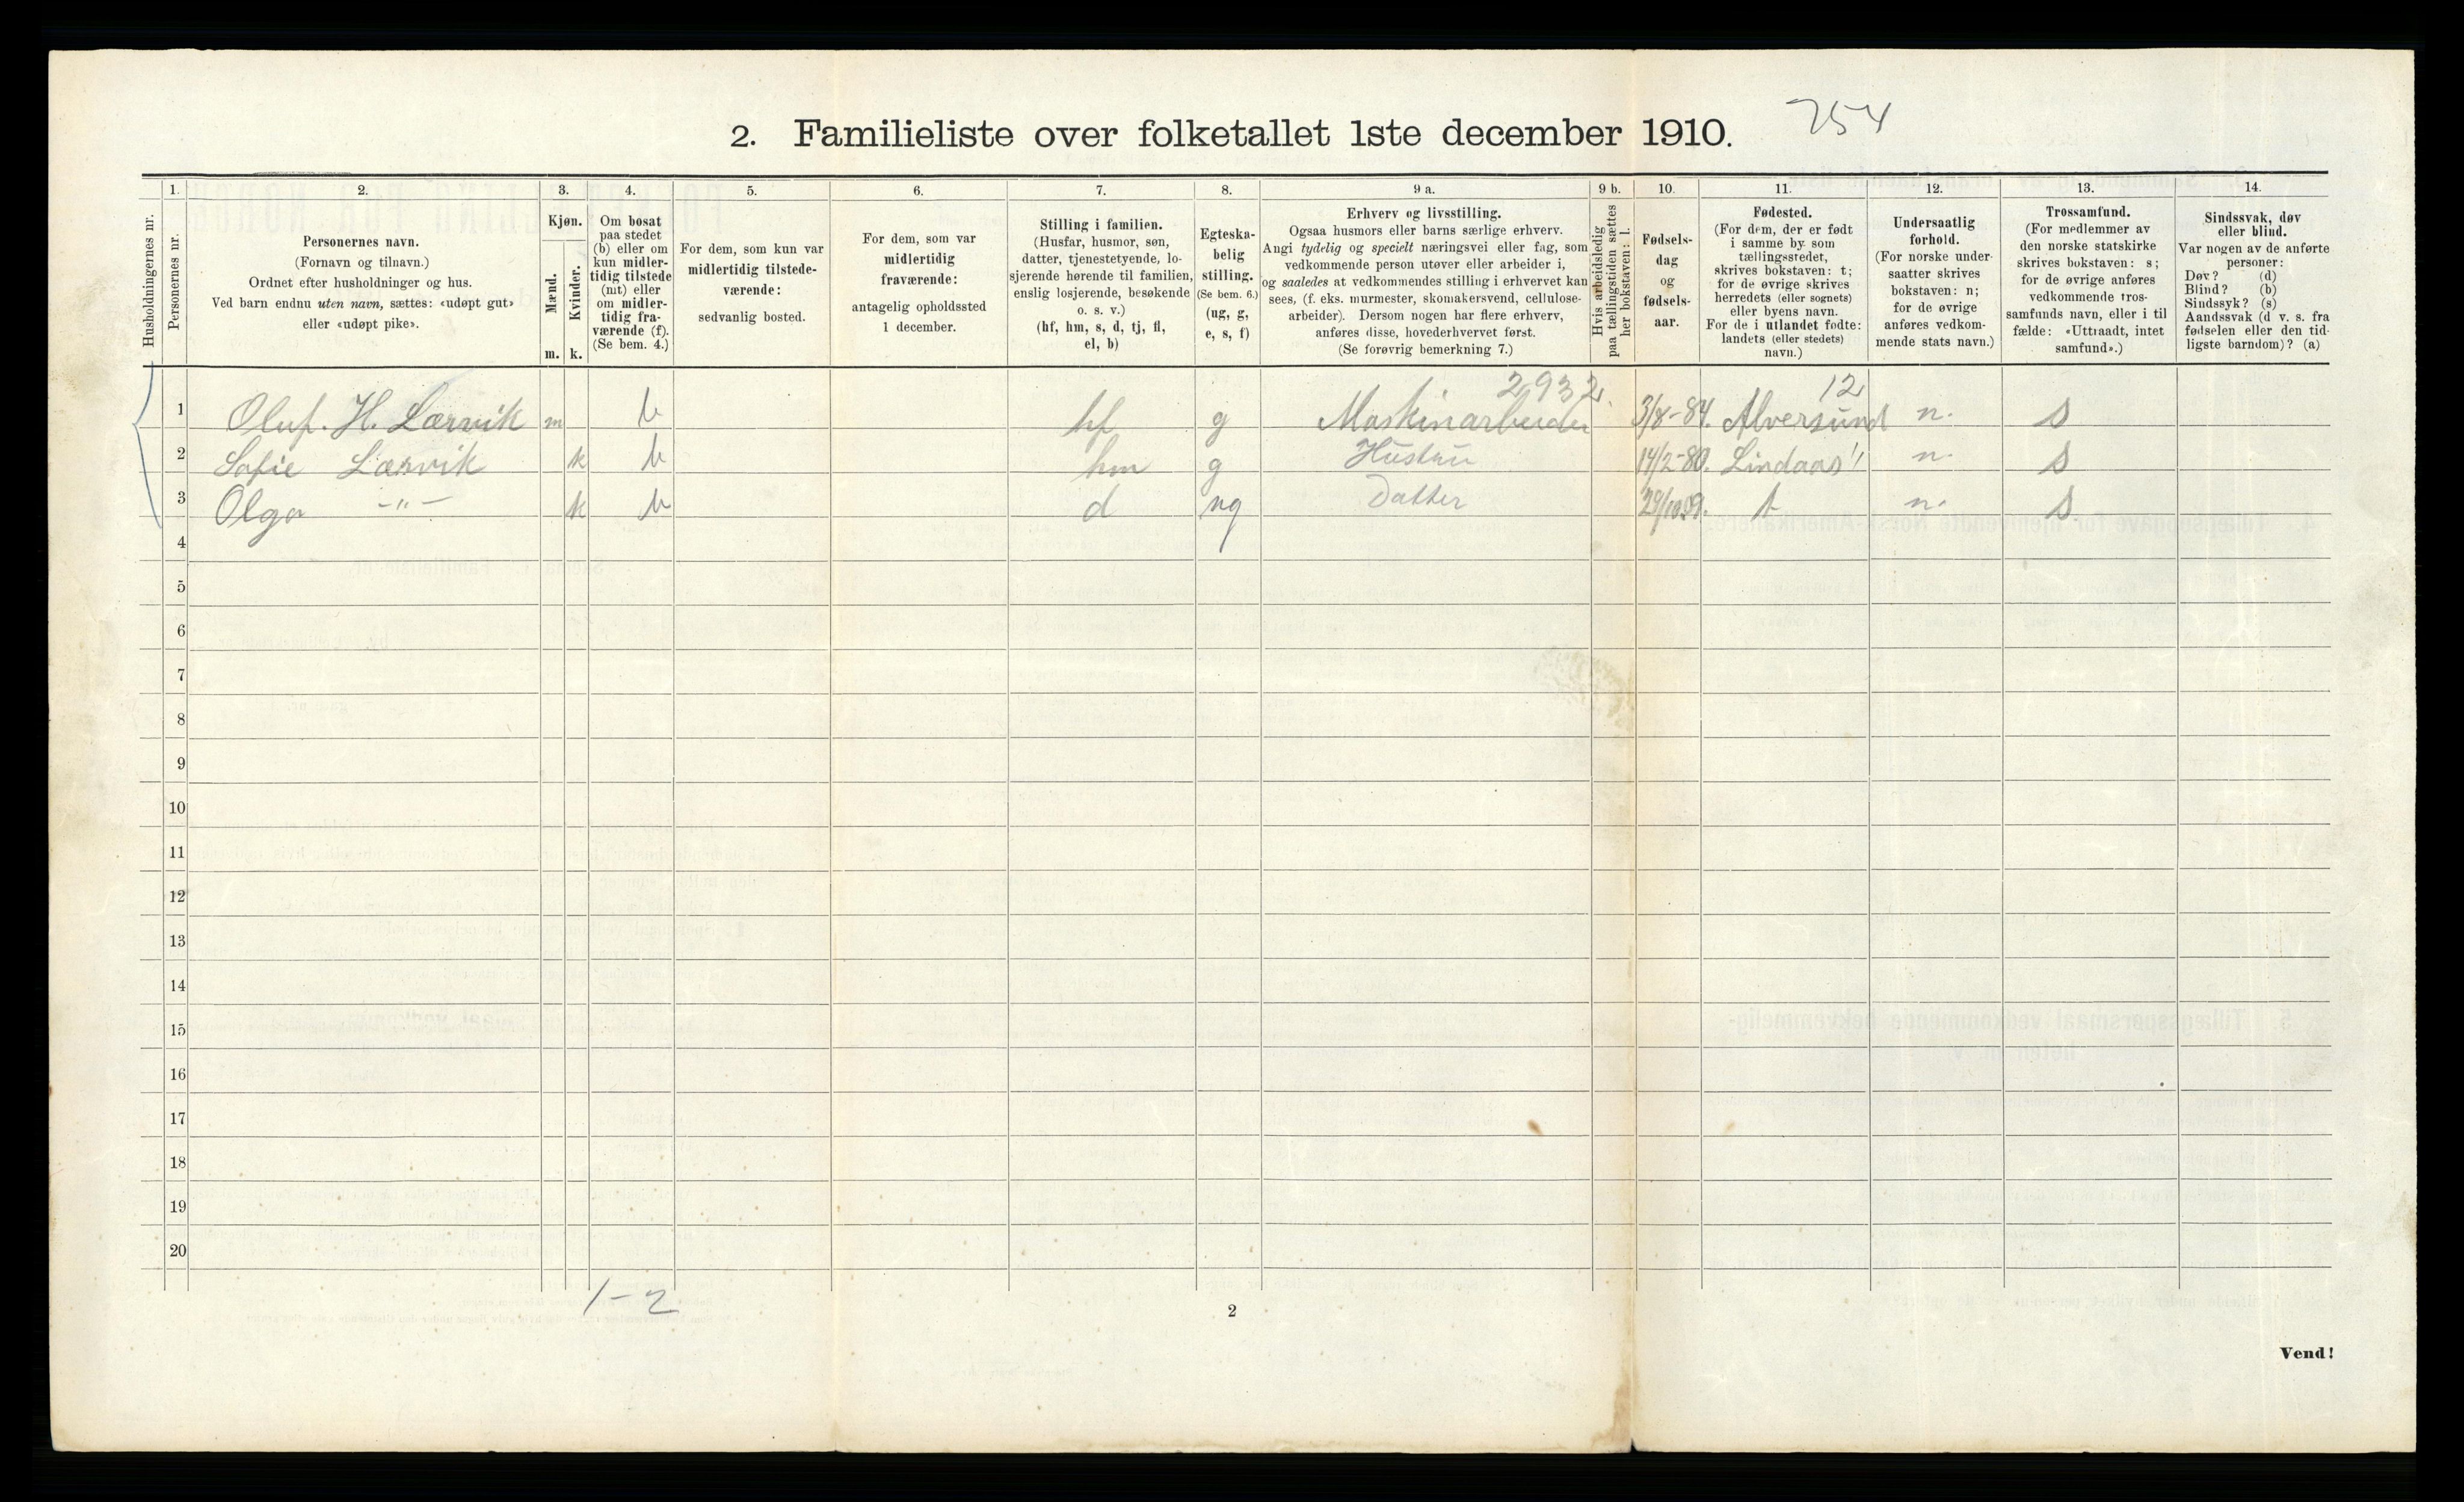 2. Familieliste over folketallet 1ste december 1910.
254
1. 2. 3. 4. 5. 6. 7. 8. 9 a. 9 b. 10. 11. 12. 13. 14.
Husholdningernes nr.
Personernes nr.
Personernes navn.
(Fornavn og tilnavn.)
Ordnet efter husholdninger og hus.
Ved barn endnu uten navn, sættes: «udøpt gut»
eller «udøpt pike».
Kjøn.
Mænd.
Kvinder.
m. k.
Om bosat
paa stedet
(b) eller om
kun midler-
tidig tilstede
(mt) eller
om midler-
tidig fra-
værende (f).
(Se bem. 4.)
For dem, som kun var
midlertidig tilstede-
værende:
sedvanlig bosted.
For dem, som var
midlertidig
fraværende:
antagelig opholdssted
1 december.
Stilling i familien.
(Husfar, husmor, søn,
datter, tjenestetyende, lo-
sjerende hørende til familien,
enslig losjerende, besøkende
o. s. v.)
(hf, hm, s, d, tj, fl,
el, b)
Egteska-
belig
stilling.
(Se bem. 6.)
(ug, g,
e, s, f)
Erhverv og livsstilling.
Ogsaa husmors eller barns særlige erhverv.
Angi tydelig og specielt næringsvei eller fag, som
vedkommende person utøver eller arbeider i,
og saaledes at vedkommendes stilling i erhvervet kan
sees, (f. eks. murmester, skomakersvend, cellulose-
arbeider). Dersom nogen har flere erhverv,
anføres disse, hovederhvervet først.
(Se forøvrig bemerkning 7.)
Hvis arbeidsledig
paa tællingstiden sættes
her bokstaven: l.
Fødsels-
dag
og
fødsels-
aar.
Fødested.
(For dem, der er født
i samme by som
tællingsstedet,
skrives bokstaven: t;
for de øvrige skrives
herredets (eller sognets)
eller byens navn.
For de i utlandet fødte:
landets (eller stedets)
navn.)
Undersaatlig
forhold.
(For norske under-
saatter skrives
bokstaven: n;
for de øvrige
anføres vedkom-
mende stats navn.)
Trossamfund.
(For medlemmer av
den norske statskirke
skrives bokstaven: s;
for de øvrige anføres
vedkommende tros-
samfunds navn, eller i til
fælde: «Uttraadt, intet
samfund».)
Sindssvak, døv
eller blind.
Var nogen av de anførte
personer:
Døv? (d)
Blind? (b)
Sindssyk? (s)
Aandssvak (d v. s. fra
fødselen eller den tid-
ligste barndom)? (a)
2932. 12
1 Oluf. H. Lærvik m b hf g Maskinarbeider 3/8-84. Alversund n. s
2 Sofie Lærvik k b hm g Hustru 14/2-80. Lindaas 11 n. s
3 Olga -"- k b d ug Datter 29/10 09. t n. s
4
5
6
7
8
9
10
11
12
13
14
15
16
17
18
19
20
1-2
2
Vend!